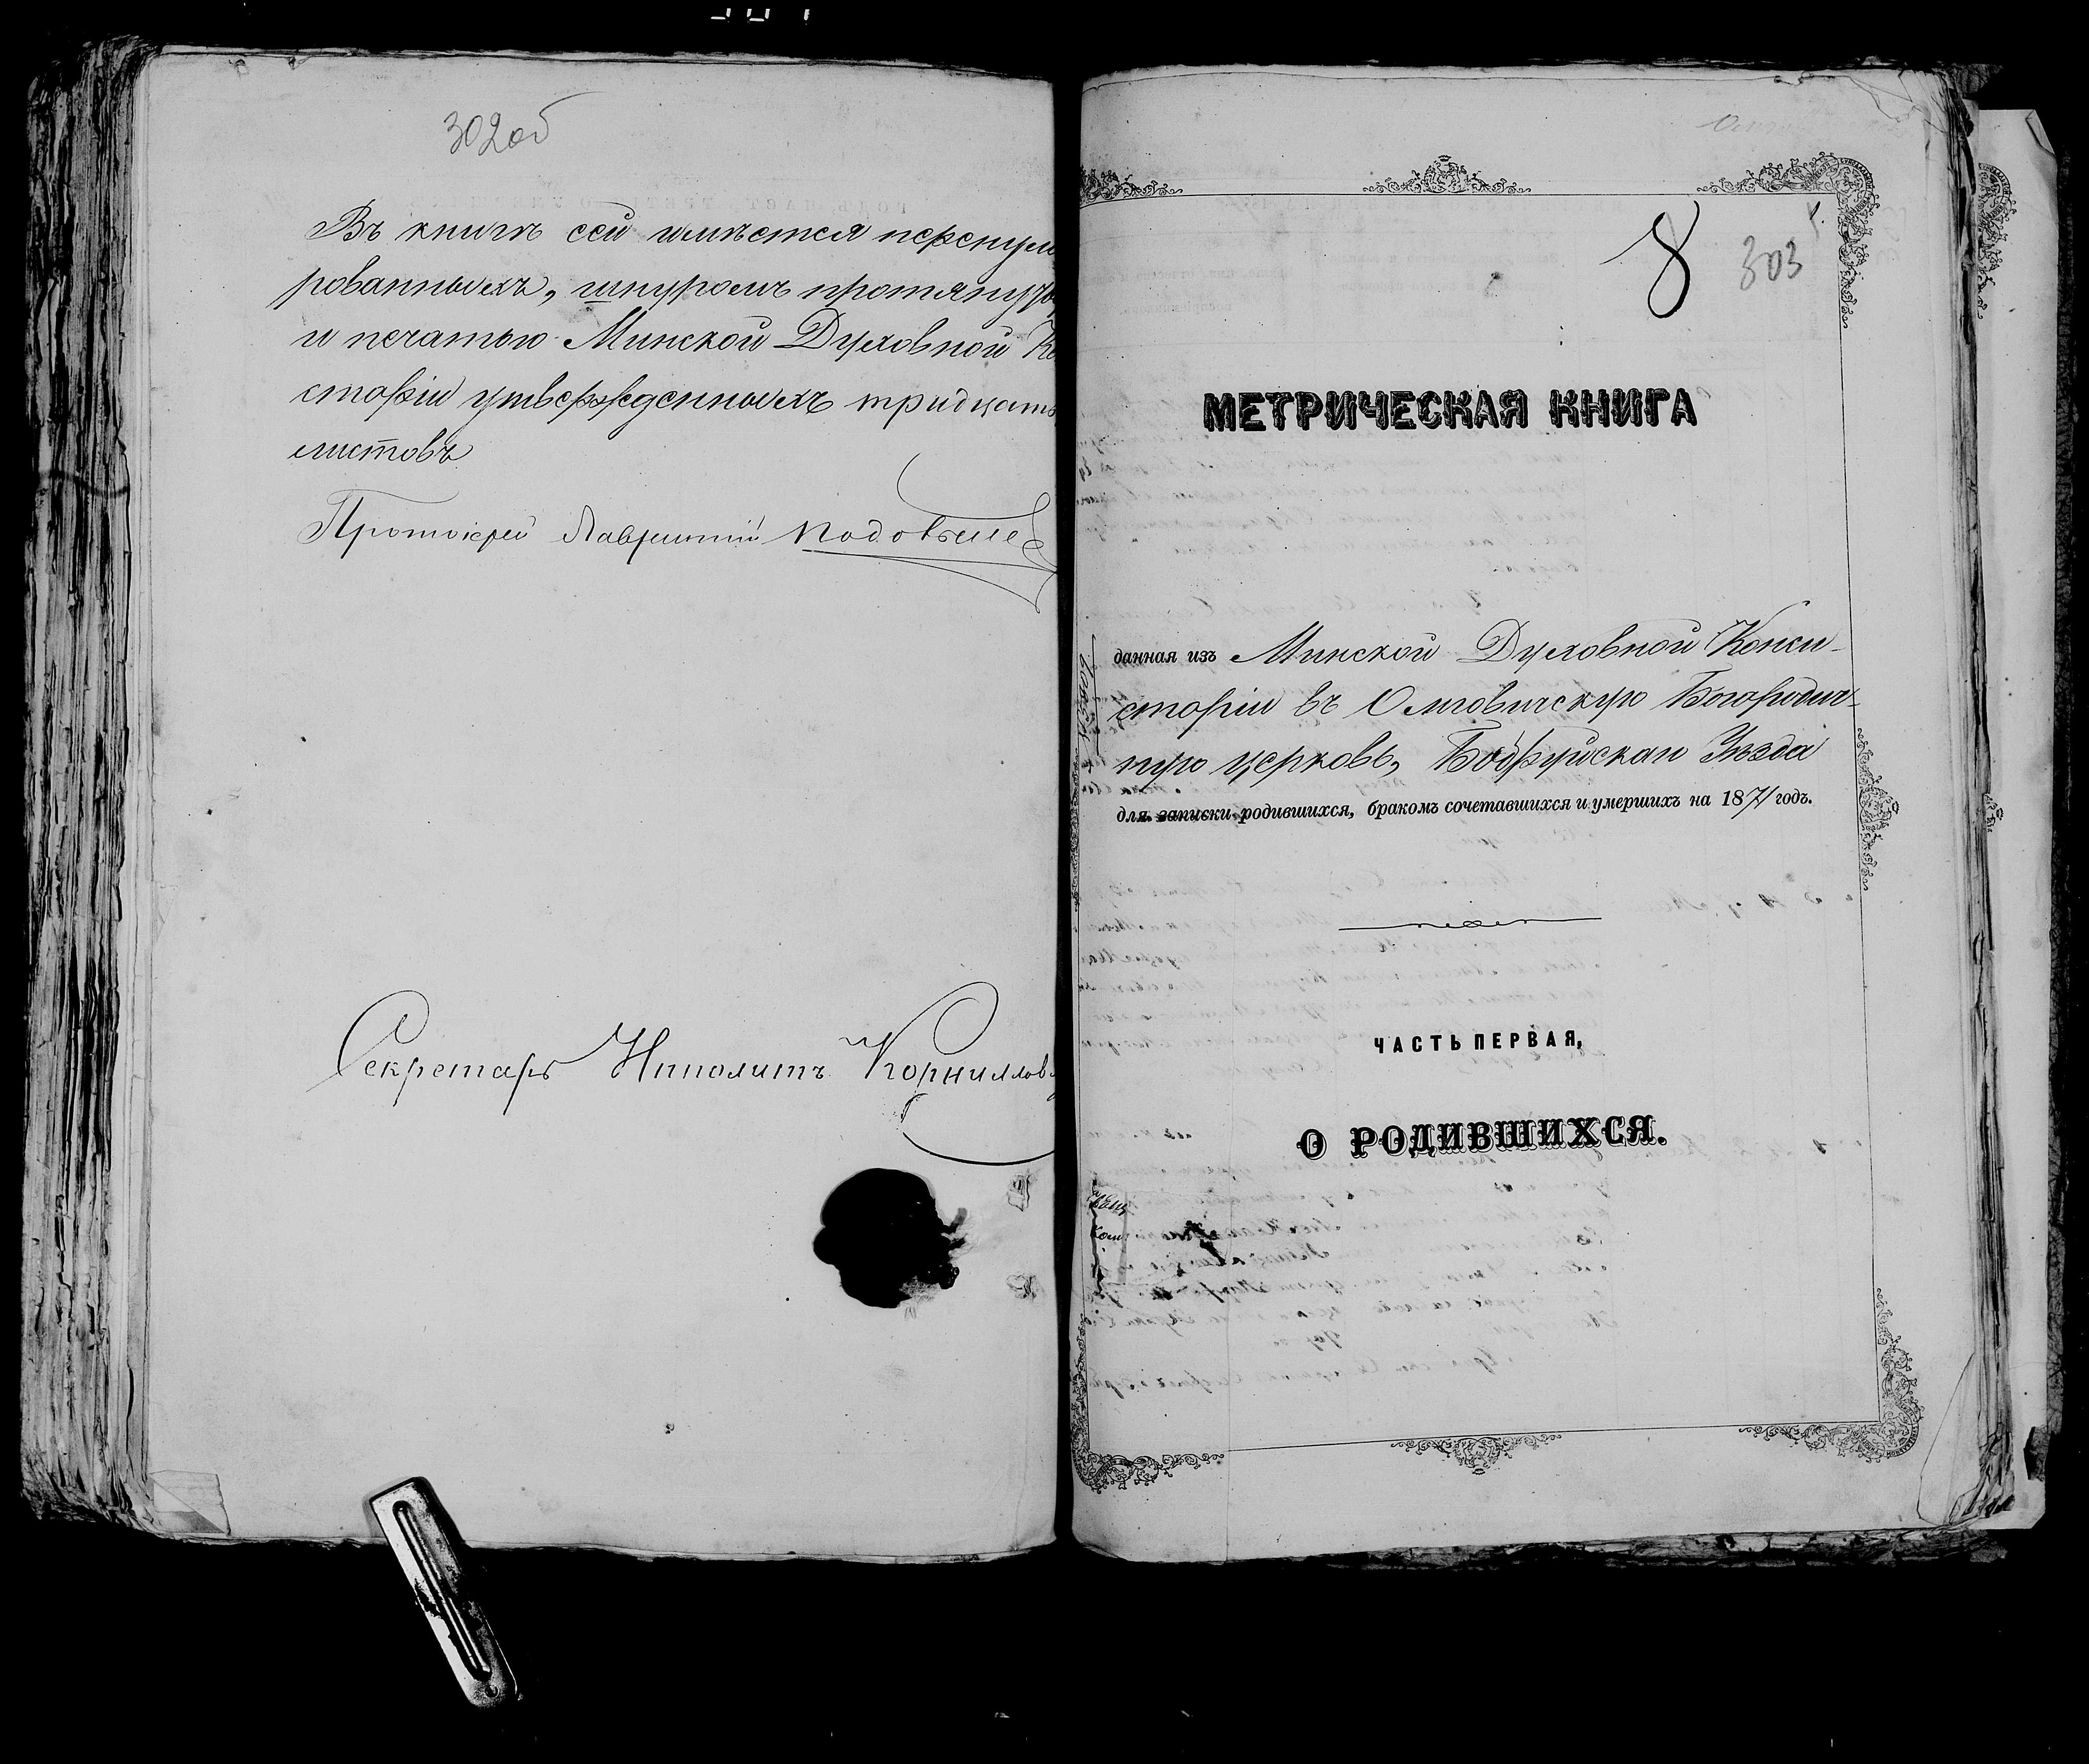 302 об
Въ книгѣ сей имѣется перенуме
рованныхъ, шнуромъ протянуты
и печатью Минской Духовной Ко
сторіи утвержденныхъ тридцать
листовъ
Протоіерей Лаврентій
Секретарь Ипполитъ Корниллов
8
303
МЕТРИЧЕСКАЯ КНИГА
данная изъ Минской Духовной Конси-
сторіи въ Омговичскую Богородич-
ную церковь, Бобруйскаго Уѣзда
для записки родившихся, бракомъ сочетавшихся и умершихъ на 1871 годъ.
ЧАСТЬ ПЕРВАЯ,
О РОДИВШИХСЯ.